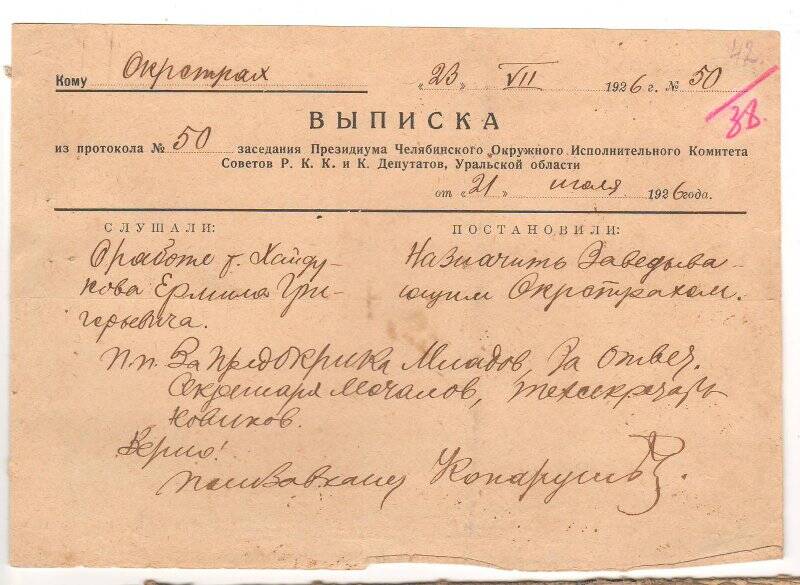 42.
Кому Окрстрах „23" VII 1926 г. № 50
38.
ВЫПИСКА
из протокола № 50 заседания Президиума Челябинского Окружного Исполнительного Комитета
Советов Р. К. К. и К. Депутатов, Уральской области
от „21" июля 1926 года.
СЛУШАЛИ: ПОСТАНОВИЛИ:
О работе т. Хайду- Назначить Заведыва-
кова Ермила Гри- ющим Окрстрахом.
горьевича.
п.п. За предокрика Миадов, За ответ.
Секретаря Мочалов, техсекретарь
Новиков.
Верно!